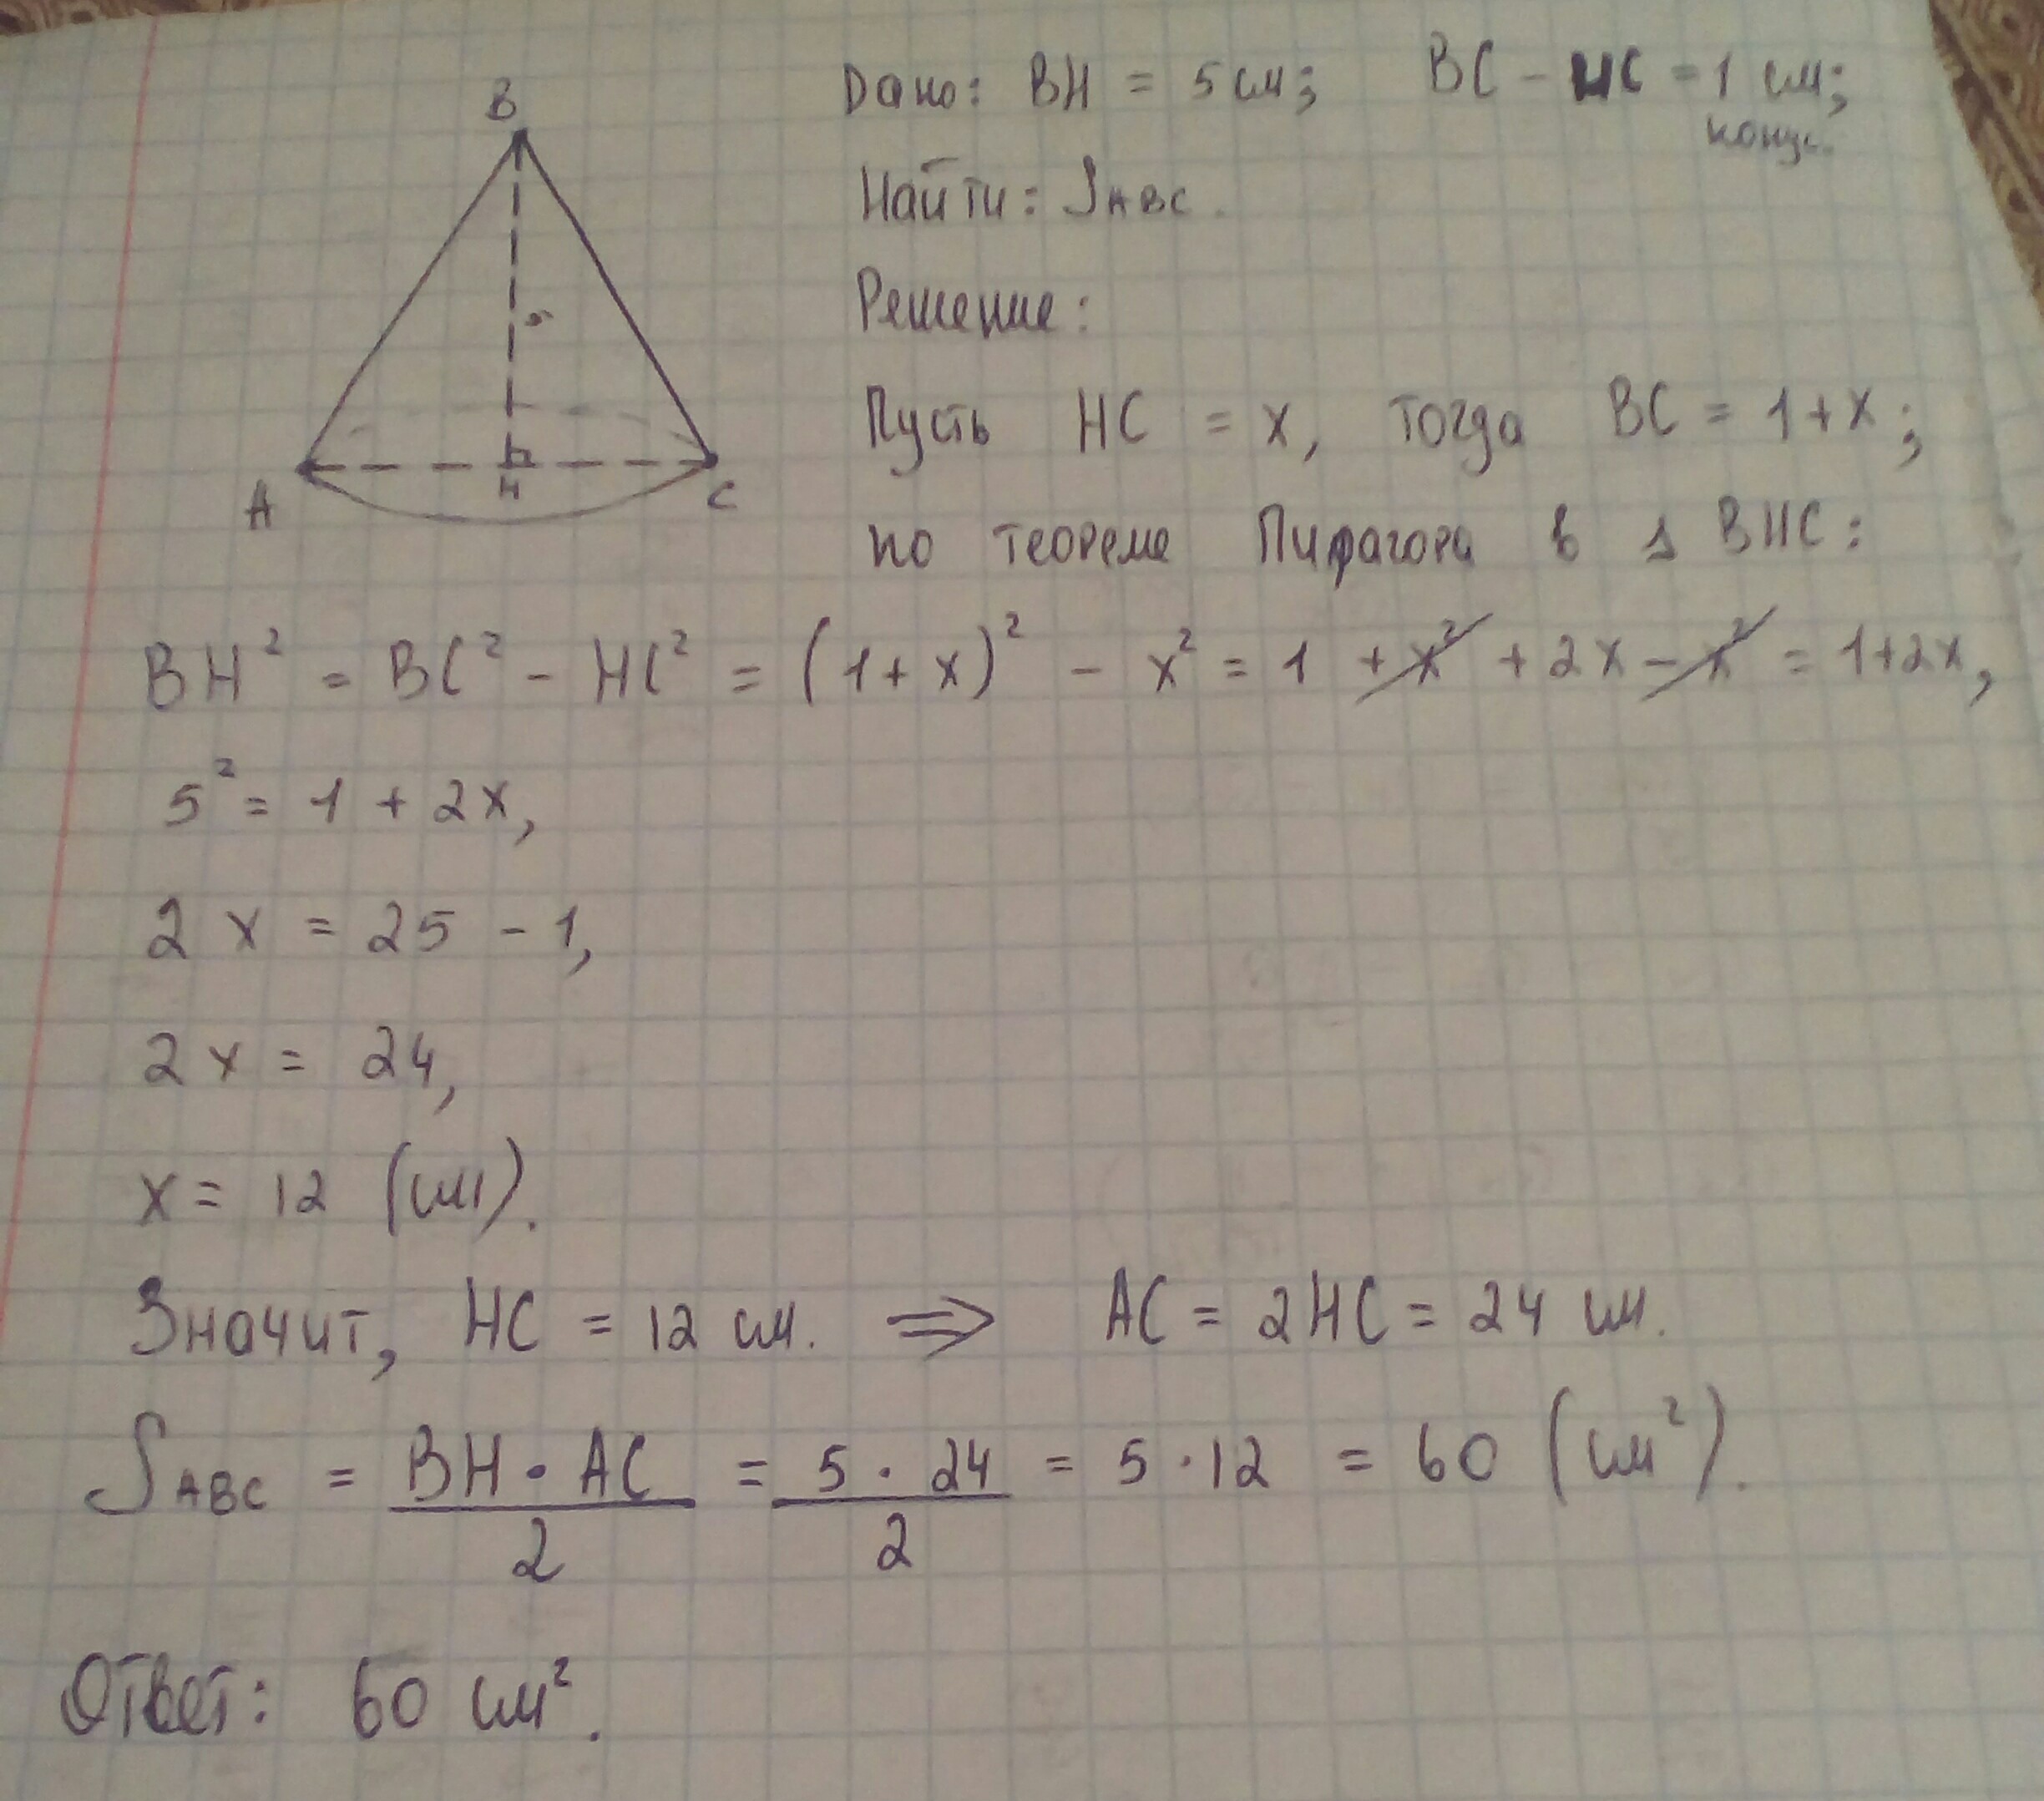 Дано: BH = 5 см; BC - HC = 1 см;
конус.
B
Найти: SABC.
5
Решение:
Пусть HC = x, тогда BC = 1+x;
A H C
по теореме Пифагора в Δ BHC:
BH² = BC² - HC² = (1+x)² - x² = 1 + x² + 2x - x² = 1+2x,
5² = 1 + 2x,
2x = 25 - 1,
2x = 24,
x = 12 (см).
Значит, HC = 12 см. ⇒ AC = 2HC = 24 см.
SABC = BH · AC / 2 = 5 · 24 / 2 = 5 · 12 = 60 (см²).
Ответ: 60 см².